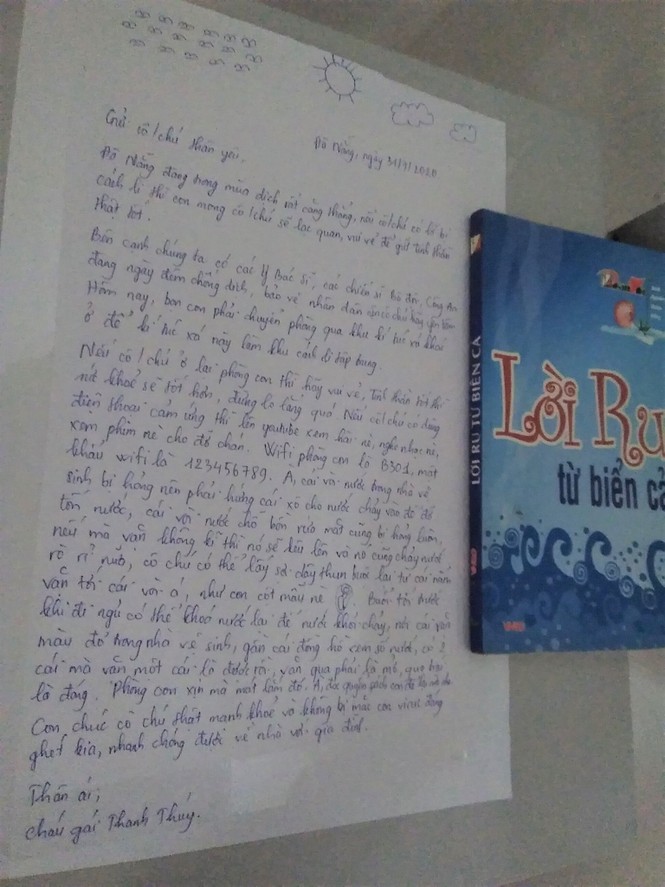 Gửi cô/chú thân yêu,
Đà Nẵng, ngày 31/7/2020
Đà Nẵng đang trong mùa dịch rất căng thẳng, nếu cô/chú có lỡ bị
cách li thì con mong cô/chú sẽ lạc quan, vui vẻ để giữ tinh thần
thật tốt.
Bên cạnh chúng ta có các Y Bác sĩ, các chiến sĩ Bộ đội, Công An
đang ngày đêm chống dịch, bảo vệ nhân dân nên cô chú hãy yên tâm
Hôm nay, bọn con phải chuyển phòng qua khu kí túc xá khác
ở để kí túc xá này làm khu cách li tập trung.
Nếu cô/chú ở lại phòng con thì hãy vui vẻ, tinh thần tốt thì
sức khoẻ sẽ tốt hơn, đừng lo lắng quá. Nếu cô/chú có dùng
điện thoại cảm ứng thì lên youtube xem hài nè, nghe nhạc nè,
xem phim nè cho đỡ chán. Wifi phòng con là B301, mật
khẩu wifi là 123456789. À, cái vòi nước trong nhà vệ
sinh bị hỏng nên phải hứng cái xô cho nước chảy vào đó đỡ
tốn nước, cái vòi nước chỗ bồn rửa mặt cũng bị hỏng luôn,
nếu mà vặn không kĩ thì nó sẽ kêu lên và nó cũng chảy nước
rò rỉ nữa, cô chú có thể lấy sợi dây thun buộc lại từ cái nắm
vặn tới cái vòi á, như con cột mẫu nè Buổi tối trước
khi đi ngủ có thể khoá nước lại để nước khỏi chảy, nới cái van
màu đỏ trong nhà vệ sinh, gần cái đồng hồ xem số nước, có 2
cái mà vặn một cái là được rồi, vặn qua phải là mở, qua trái
là đóng. Phòng con xịn mà mát lắm đó. À,
Con chúc cô chú thật mạnh khoẻ và không bị mắc con virus đáng
ghét kia, nhanh chóng được về nhà với gia đình.
Thân ái,
cháu gái Thanh Thúy.
LỜI RU TỪ BIỂN CẢ
Lời Ru
từ biển cả